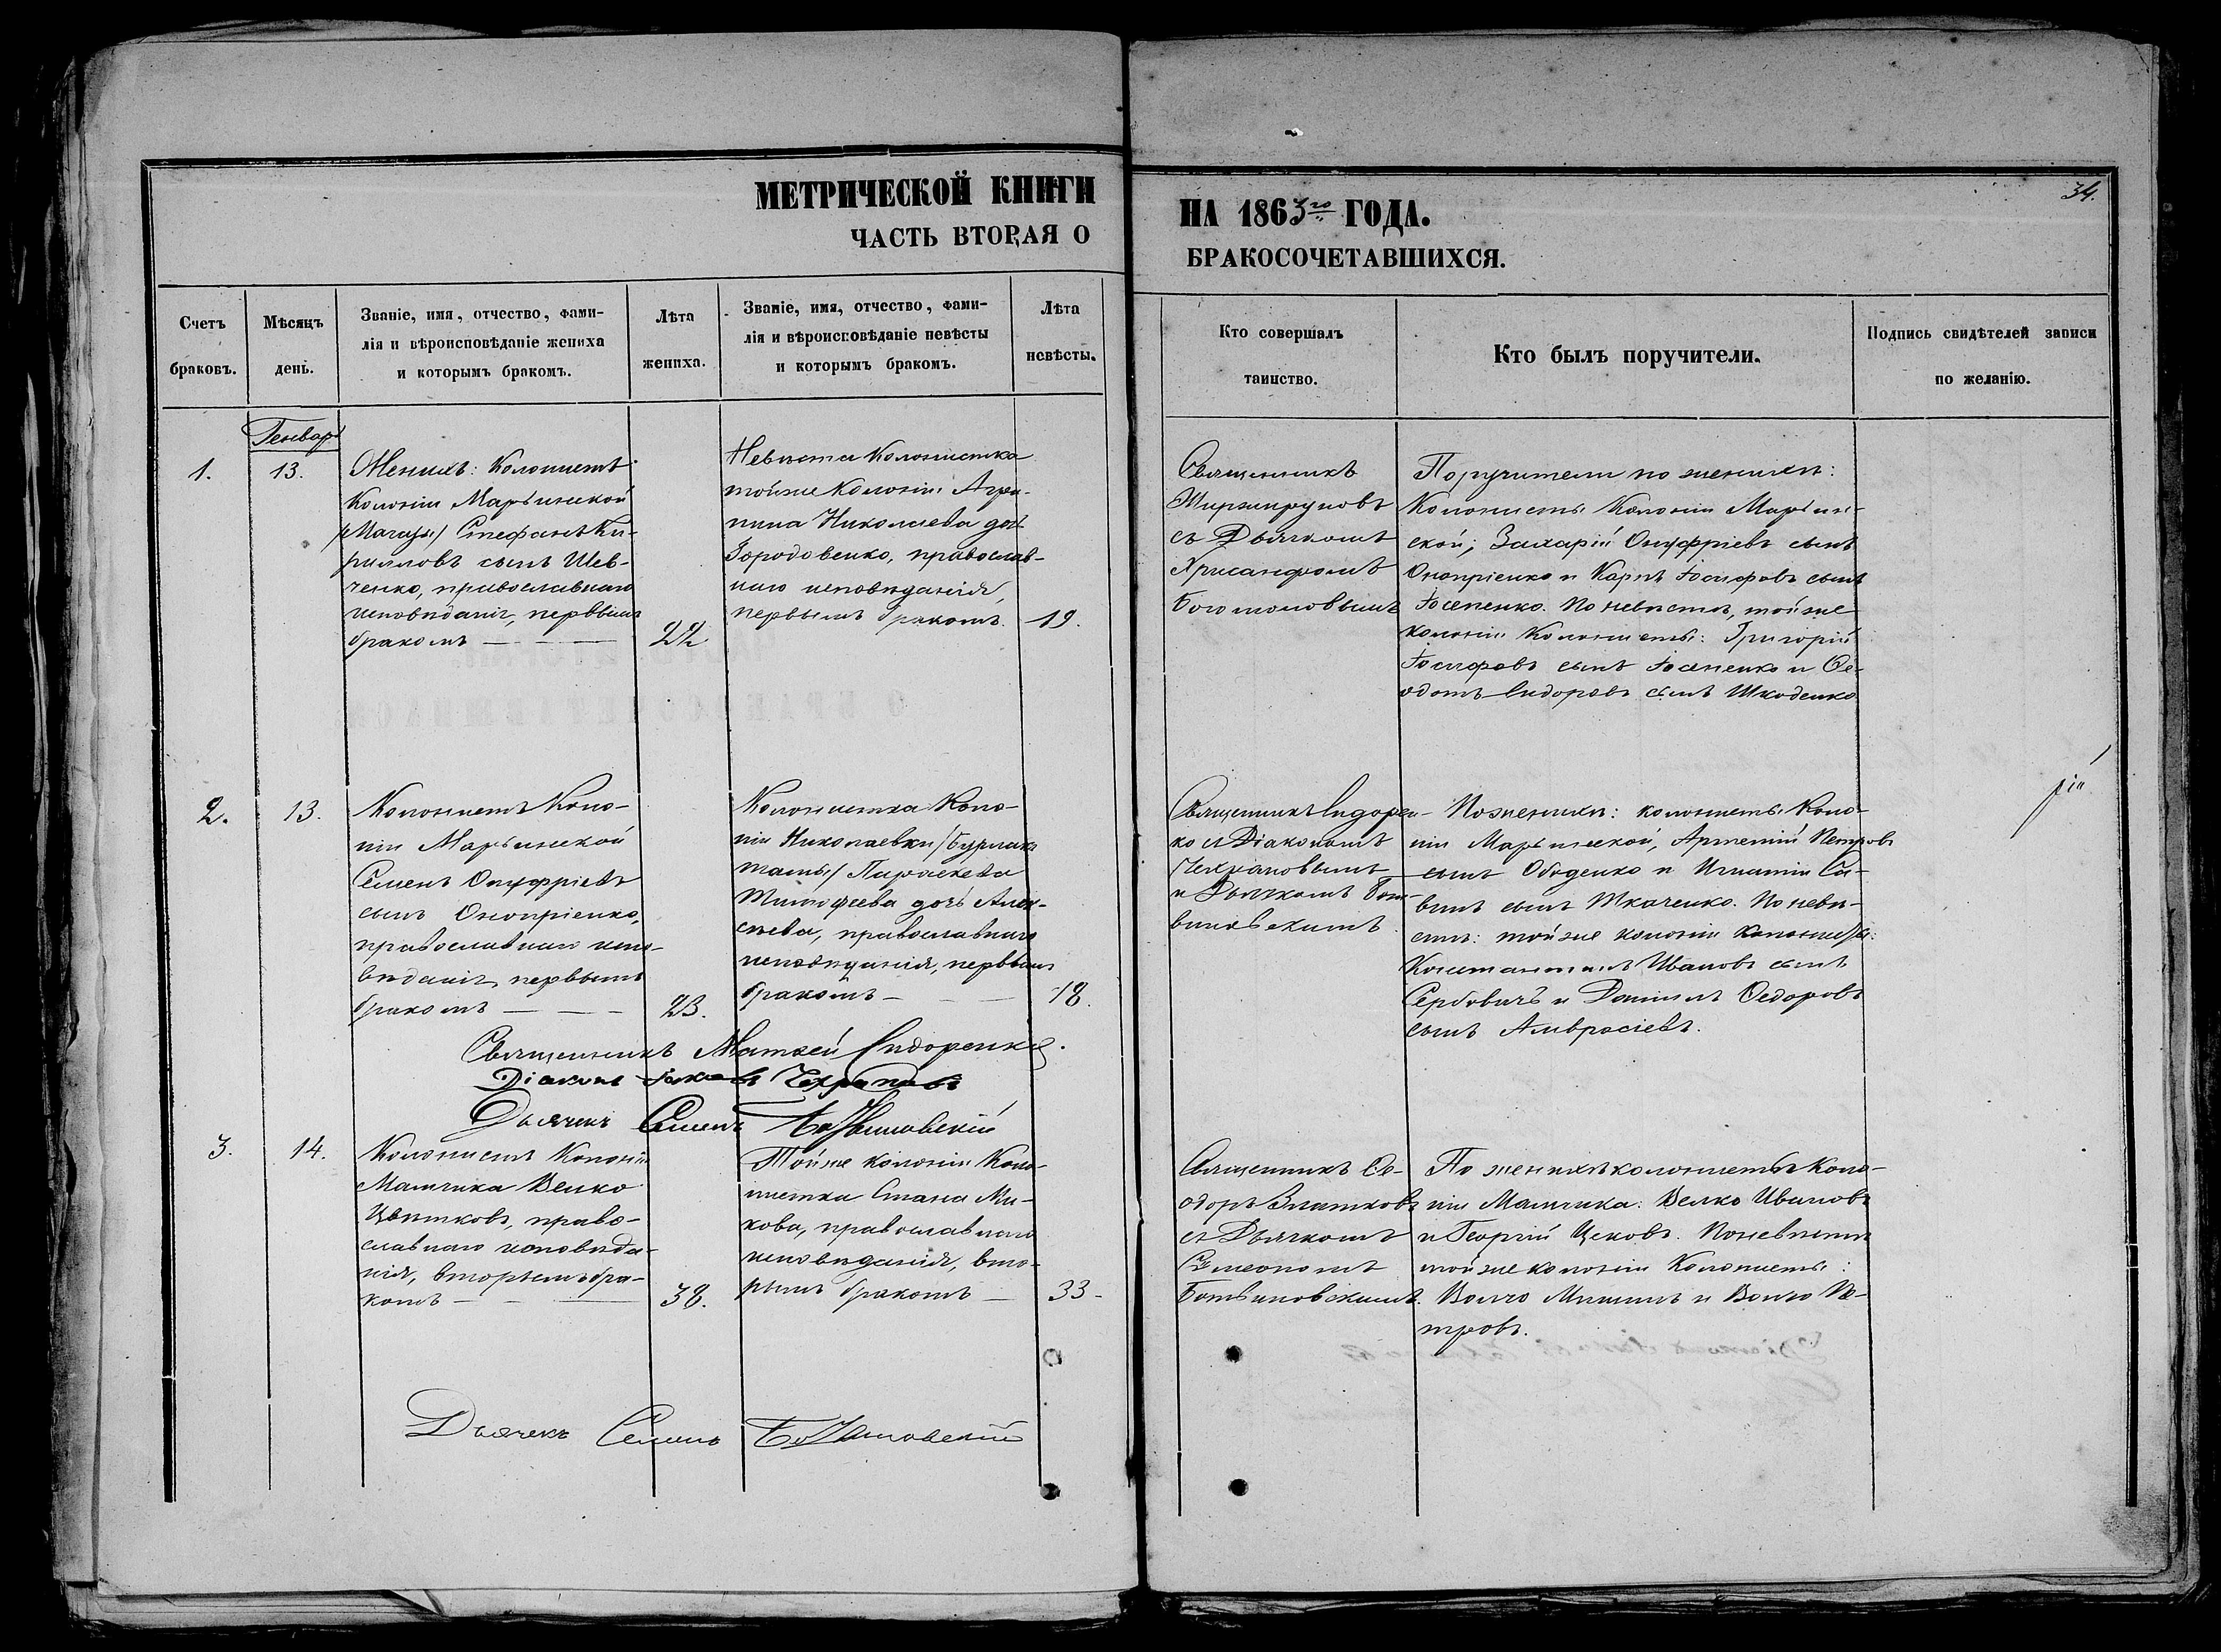 МЕТРИЧЕСКОЙ КНИГИ
ЧАСТЬ ВТОРАЯ О
Счетъ браковъ.
Мѣсяцъ день.
Званіе, имя, отчество, фами-
лія и вѣроисповѣданіе жениха
и которымъ бракомъ.
Лѣта жениха.
Званіе, имя, отчество, фами-
лія и вѣроисповѣданіе невѣсты
и которымъ бракомъ.
Лѣта невѣсты.
34.
НА 1863го ГОДА.
БРАКОСОЧЕТАВШИХСЯ.
Кто совершалъ
таинство.
Кто былъ поручители.
Подпись свидѣтелей записи
по желанію.
Генварь
1.
13.
Женихъ: Колонистъ
Колоніи Марьинской
/Магазы/ Стефанъ Ки-
рилловъ сынъ Шев-
ченко, православнаго
исповѣданія, первымъ
бракомъ
22
Невѣста Колонистка
тойже Колоніи Агри-
пина Николаева дочь
Городовенко, православ-
наго исповѣданія,
первымъ бракомъ.
19.
Священникъ
съ Дьячкомъ
Хрисанфомъ
Богомоловымъ
Поручители по женихѣ:
Колонисты Колоніи Марьин-
ской; Захарій Онуфріевъ сынъ
Онопріенко и Карпъ Іосифовъ сынъ
Іосепенко. По невѣстѣ, тойже
колоніи Колонисты: Григорій
Іосифовъ сынъ Іосепенко и Ѳе-
одотъ Сидоровъ сынъ Шкоденко
2.
13.
Колонистъ Коло-
ніи Марьинской
Семенъ Онуфріевъ
сынъ Онопріенко,
православнаго испо-
вѣданія, первымъ
бракомъ
23.
Колонистка Коло-
ніи Николаевки /Бурлака
Параскева
Тимофеева дочь Алек-
сѣева, православнаго
исповѣданія, первымъ
бракомъ
18.
Священникъ Сидорен-
ко съ Діакономъ
Чехрановымъ
и Дьячкомъ Бот-
виновскимъ
По женихѣ: колонисты Коло-
ніи Марьинской, Артемій Петровъ
сынъ Ободенко и Игнатій Са-
винъ сынъ Ткаченко. По невѣ-
стѣ: тойже колоніи колонисты:
Константинъ Ивановъ сынъ
Сербовичъ и Даніилъ Ѳедоровъ
сынъ Амвросіевъ.
Священникъ Матвей Сидоренко.
Діаконъ Іаковъ Чехрановъ
Дьячекъ Семенъ Ботвиновскій
3.
14.
Колонистъ Колоніи
Малчика Велко
Цвѣтковъ, право-
славнаго исповѣда-
нія, вторымъ бра-
комъ
38.
Тойже колоніи Коло-
нистка Стана Ми-
кова, православнаго
исповѣданія, вто-
рымъ бракомъ
33
Священникъ Ѳе-
одоръ Златковъ
съ Дьячкомъ
Симеономъ
Ботвиновскимъ.
По женихѣ колонисты Коло-
ніи Малчика: Велко Ивановъ
и Георгій Цековъ. По невѣстѣ
тойже колоніи Колонисты:
Волчо Митинъ и Волчо Пе-
тровъ.
Дьячекъ Семенъ Ботвиновскій
рій